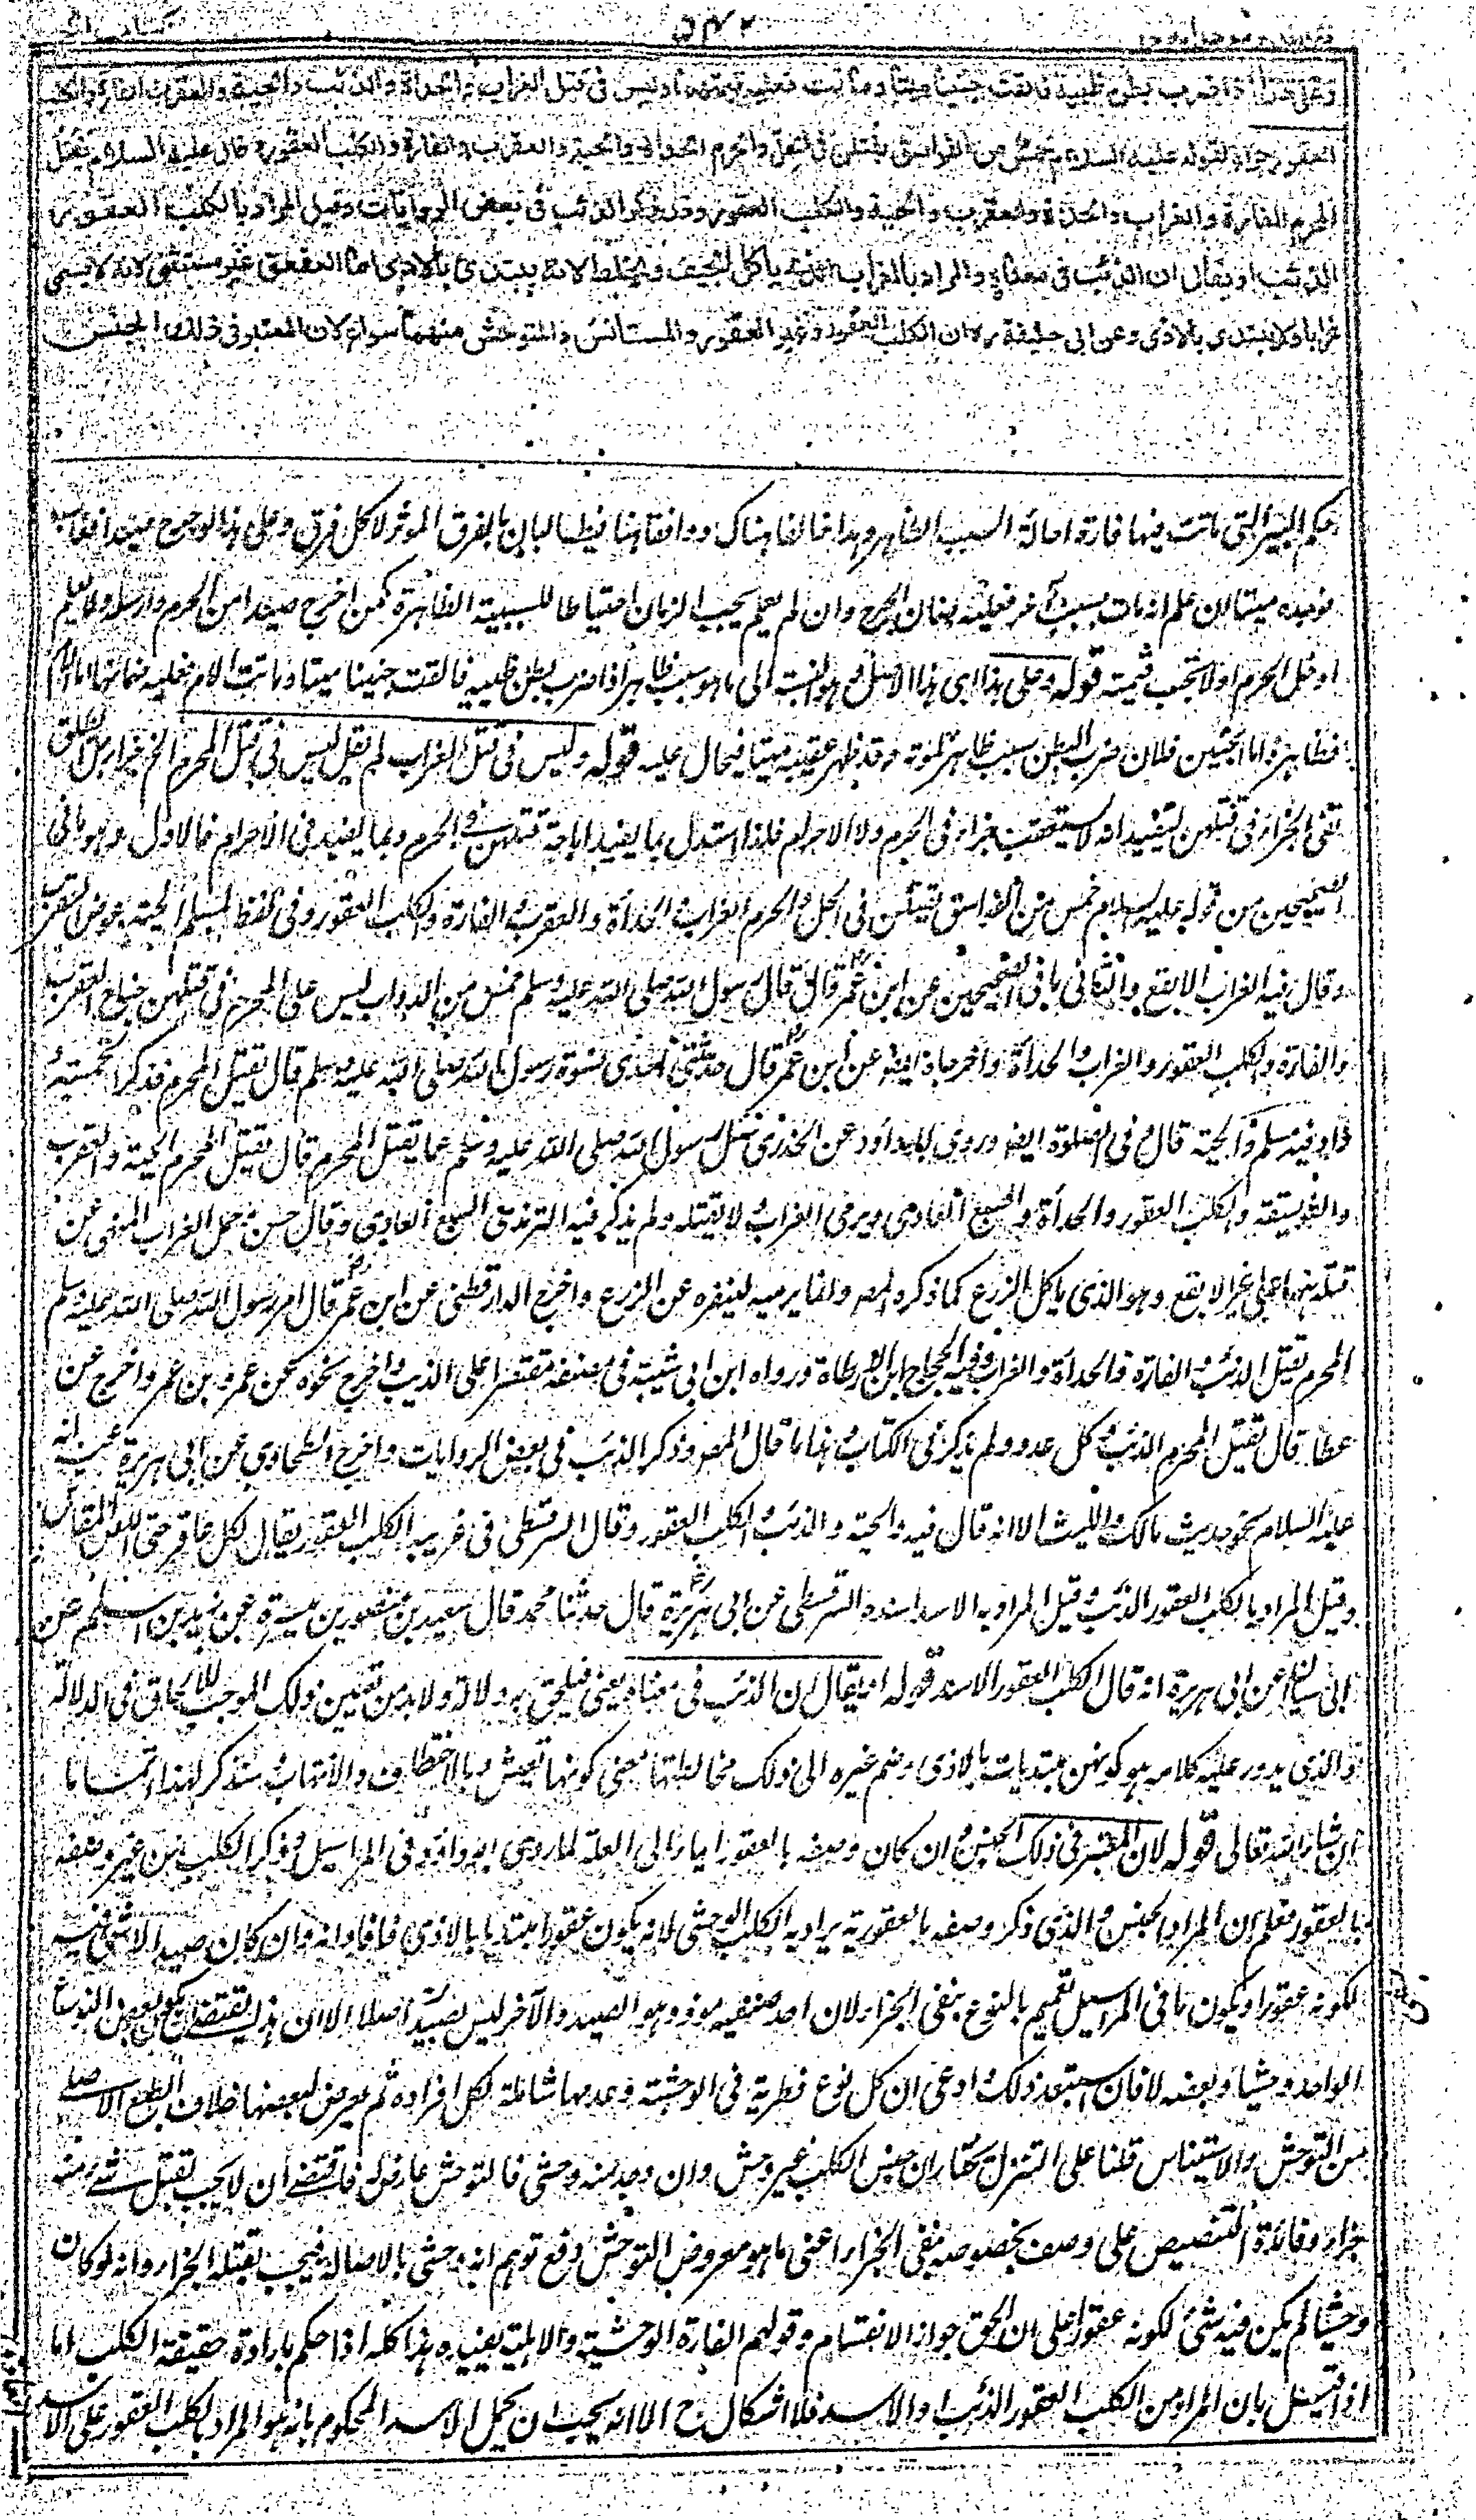 وعلى هذا اذا ضرب بطن ظبية فالقت جنينا ميتا وماتت فعليه قيمتهما وليس فى قتل الغراب والحدأة والذئب والحية والعقرب والفارة والكلب
العقور جزاء لقوله عليه السلام خمس من الفواسق يقتلن فى الحل والحرم الحدأة والحية والعقرب والفارة والكلب العقور وقال عليه السلام يقتل
المحرم الفارة والغراب والحدأة والعقرب والحية والكلب العقور وقد ذكر الذئب فى بعض الروايات وقيل المراد بالكلب العقور
الذئب او يقال ان الذئب فى معناه والمراد بالغراب الذى ياكل الجيف ويخلط لانه يبتدئ بالاذى اما العقعق غير مستثنى لانه لا يسمى
غرابا ولا يبتدئ بالاذى وعن ابى حنيفة رح ان الكلب العقور وغير العقور والمستانس والمتوحش منهما سواء لان المعتبر فى ذلك الجنس
حكم البير التى ماتت فيها فارة احالة السبب الظاهر وهذا خالفا هناك ووافقا هنا فيطالبان بالفرق الموثر لا كل فرق وعلى هذا لو جرح صيدا فغاب
فوجده ميتا ان علم انه مات بسبب آخر فعليه ضمان الجرح وان لم يعلم يجب الزمان احتياطا للسببية الظاهرة كمن اخرج صيدا من الحرم وارسله ولا يعلم
ادخل الحرم اولا تجب قيمته قوله وعلى هذا اى هذا الاصل وهو النسبة الى ما هو سبب ظاهر اذا ضرب بطن ظبية فالقت جنينا ميتا وماتت الام فعليه ضمانهما اما الام
فظاهرة واما الجنين فلان ضرب البطن سبب ظاهر لموته وقد ظهر عقيبه ميتا فيحال عليه قوله وليس فى قتل الغراب لم يقل ليس فى قتل المحرم الخ جزاء بل اطلق
نفى الجزاء فى قتلهن ليفيد انه لا يستعقب جزاء فى الحرم ولا الاحرام فلذا استدل بما يفيد اباحة قتلهن فى الحرم وبما يفيد فى الاحرام فالاول وهو ما فى
الصحيحين من قوله عليه السلام خمس من الفواسق يقتلن فى الحل والحرم الغراب والحدأة والعقرب والفارة والكلب العقور وفى لفظ لمسلم الحية عوض العقرب
وقال فيه الغراب الابقع والثانى ما فى الصحيحين عن ابن عمر قال قال رسول الله صلى الله عليه وسلم خمس من الدواب ليس على المحرم فى قتلهن جناح العقرب
والفارة والكلب العقور والغراب والحدأة واخرجاه ايضا عن ابن عمر قال حدثتنى احدى نسوة رسول الله صلى الله عليه وسلم قال يقتل المحرم فذكر الخمسة
زاد فيه مسلم والحية قال وفى الصلوة ايضا وروى ابو داود عن الخدرى سئل رسول الله صلى الله عليه وسلم عما يقتل المحرم قال يقتل المحرم الحية والعقرب
والفويسقة والكلب العقور والحدأة والسبع العادى ويرمى الغراب ولا يقتله ولم يذكر فيه الترمذى السبع العادى وقال حسن وحمل الغراب المنهى عن
قتله هنا على غير الابقع وهو الذى ياكل الزرع كما ذكره المص ولذا يرميه لينفره عن الزرع واخرج الدارقطنى عن ابن عمر قال امر رسول الله صلى الله عليه وسلم
المحرم بقتل الذئب والفارة والحدأة والغراب وفيه الحجاج ابن ارطاة ورواه ابن ابى شيبة فى مصنفه مقتصرا على الذئب واخرج نحوه عن عمر وابن عمر واخرج عن
عطا قال يقتل المحرم الذئب وكل عدو ولم يذكر فى الكتاب وهذا ما قال المص وذكر الذئب فى بعض الروايات واخرج الطحاوى عن ابى هريرة عنه انه
عليه السلام نحو حديث مالك والليث الا انه قال فيه والحية والذئب والكلب العقور وقال السرقسطى فى غريبه الكلب العقور يقال لكل عاقر حتى اللص المقاتل
وقيل المراد بالكلب العقور الذئب وقيل المراد به الاسد اسنده السرقسطى عن ابى هريرة قال حدثنا محمد قال سعيد بن منصور بن ميسرة عن زيد بن اسلم عن
ابى عن ابى هريرة انه قال الكلب العقور الاسد قوله او يقال ان الذئب فى معناه يعنى فيلحق به دلالة ولا بد من تعيين ذلك الموجب للالحاق فى الدلالة
والذى يدور عليه كلامه هو كونهن مبتديات بالاذى وضم غيره الى ذلك مخالطتها يعنى كونها تعيش بالاختطاف والانتهاب سنذكر لهذا اتماما
ان شاء الله تعالى قوله لان المعتبر فى ذلك الجنس وان كان وصفه بالعقور ايماء الى العلة لما روى ابو داود فى المراسيل وذكر الكلب من غير وصفه
بالعقور فعلم ان المراد الجنس والذى ذكر وصفه بالعقورية يراد به الكلب الوحشى لانه يكون عقورا مبتديا بالاذى فافاد انه وان كان صيدا لا شئ فيه
لكونه عقورا ويكون ما فى المراسيل تعميم بالنوع بنفى الجزاء لان احد صنفيه موذ وهو الصيد والآخر ليس بصيد اصلا الا ان هذا يقتضى كون بعض النوع
الواحد وحشيا وبعضه لا فان استبعد ذلك وادعى ان كل نوع فطرية فى الوحشية وعدمها شاملة لكل افراده ثم يعرض لبعضها خلاف الطبع الاصلى
من التوحش والاستيناس قلنا على التنزل نختار ان جنس الكلب غير وحش وان وجد منه وحشى فالتوحش عارض له فاقتضى ان لا يجب بقتل شئ منه
جزاء وفائدة التنصيص على وصف بخصوصه بنفى الجزاء اعنى ما هو معروض التوحش دفع توهم انه وحشى بالاصالة فيجب بقتله الجزاء وانه لو كان
وحشيا لم يكن فيه شئ لكونه عقورا على ان الحق جواز الانقسام وقولهم الفارة الوحشية والاهلية يفيده هذا كله اذا حكم بارادة حقيقة الكلب اما
اذا قيل بان المراد من الكلب العقور الذئب او الاسد فلا اشكال ح الا انه يجب ان يحمل الاسد المحكوم بانه هو المراد بالكلب العقور على الاسد